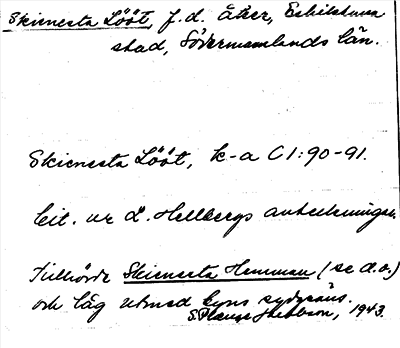 Skienesta Lööt, f.d. åker, Eskilstuna
stad, Södermanlands län.
Skienesta Lööt, k-a C 1:90-91.
Cit. ur L. Hellbergs anteckningar.
Tillhörde Skienesta Hemman (se d.o.)
och låg utmed byns sydgräns.
S. Jacobson, 1943.